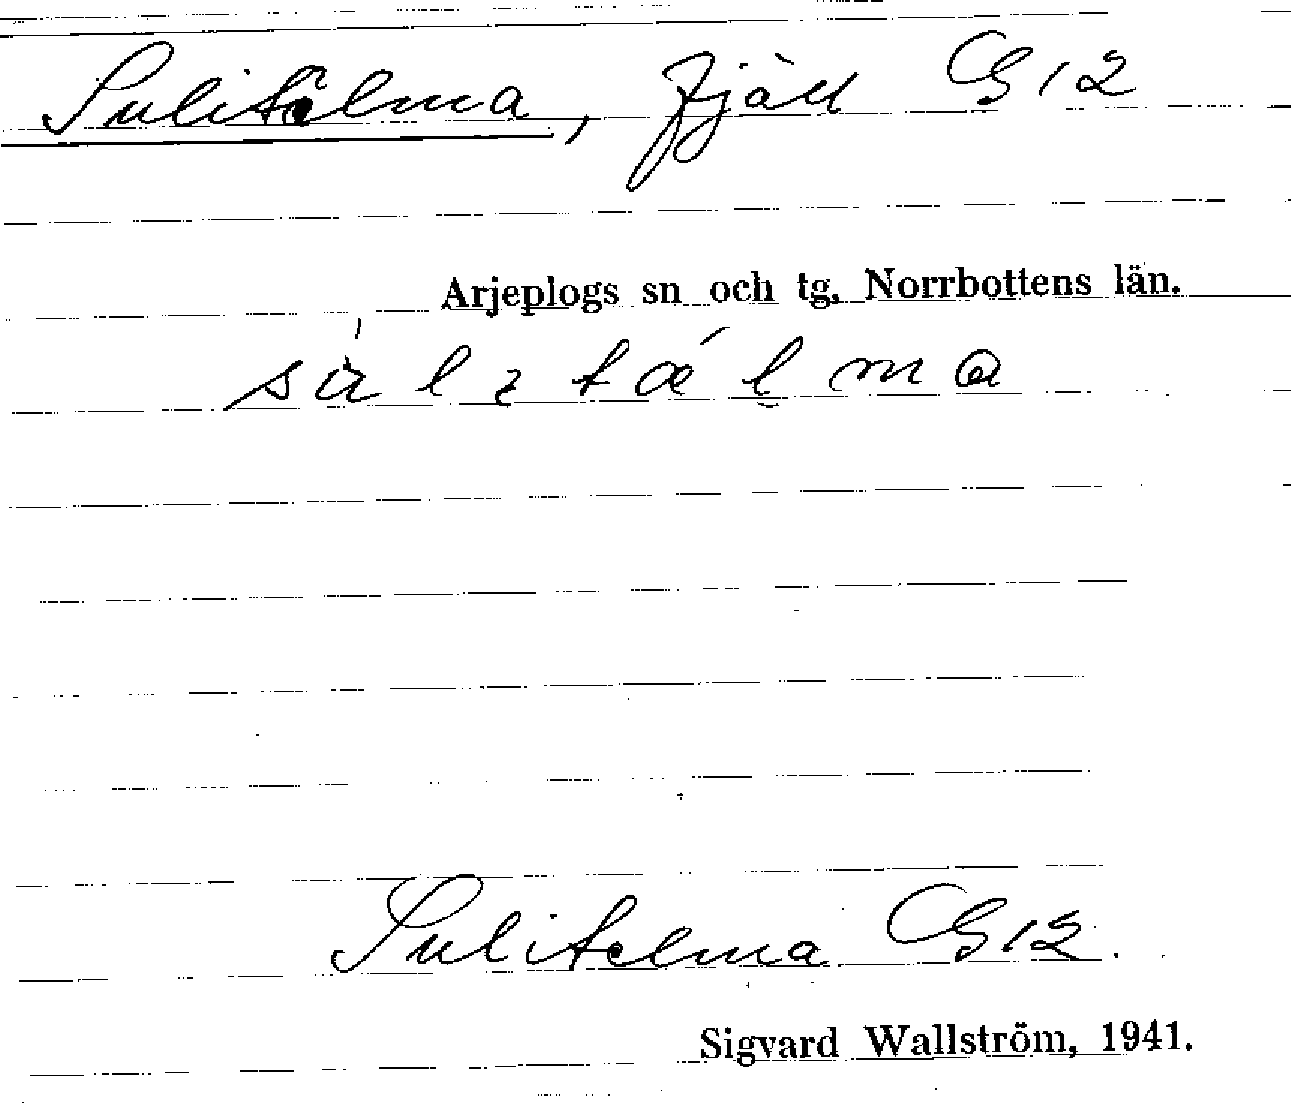 Sulitälma, fjäll G12
Arjeplogs sn och tg, Norrbottens län.
Sulitelma G12.
Sigvard Wallström, 1941.